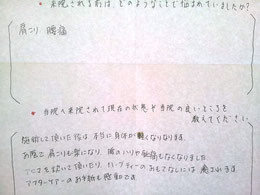 来院される前は、どのようなことで悩まれていましたか?
肩こり 腰痛
当院へ来院されて現在の状態や当院の良いところを
教えてください
施術して頂いた後は 本当に身体が軽くなります。
お陰で、肩こりも楽になり、腰のハリや 痛もなくなりました
を 頂いたり、ハーブティーのおもてなしには 癒されます
アフターケアーのお手紙も感動です。